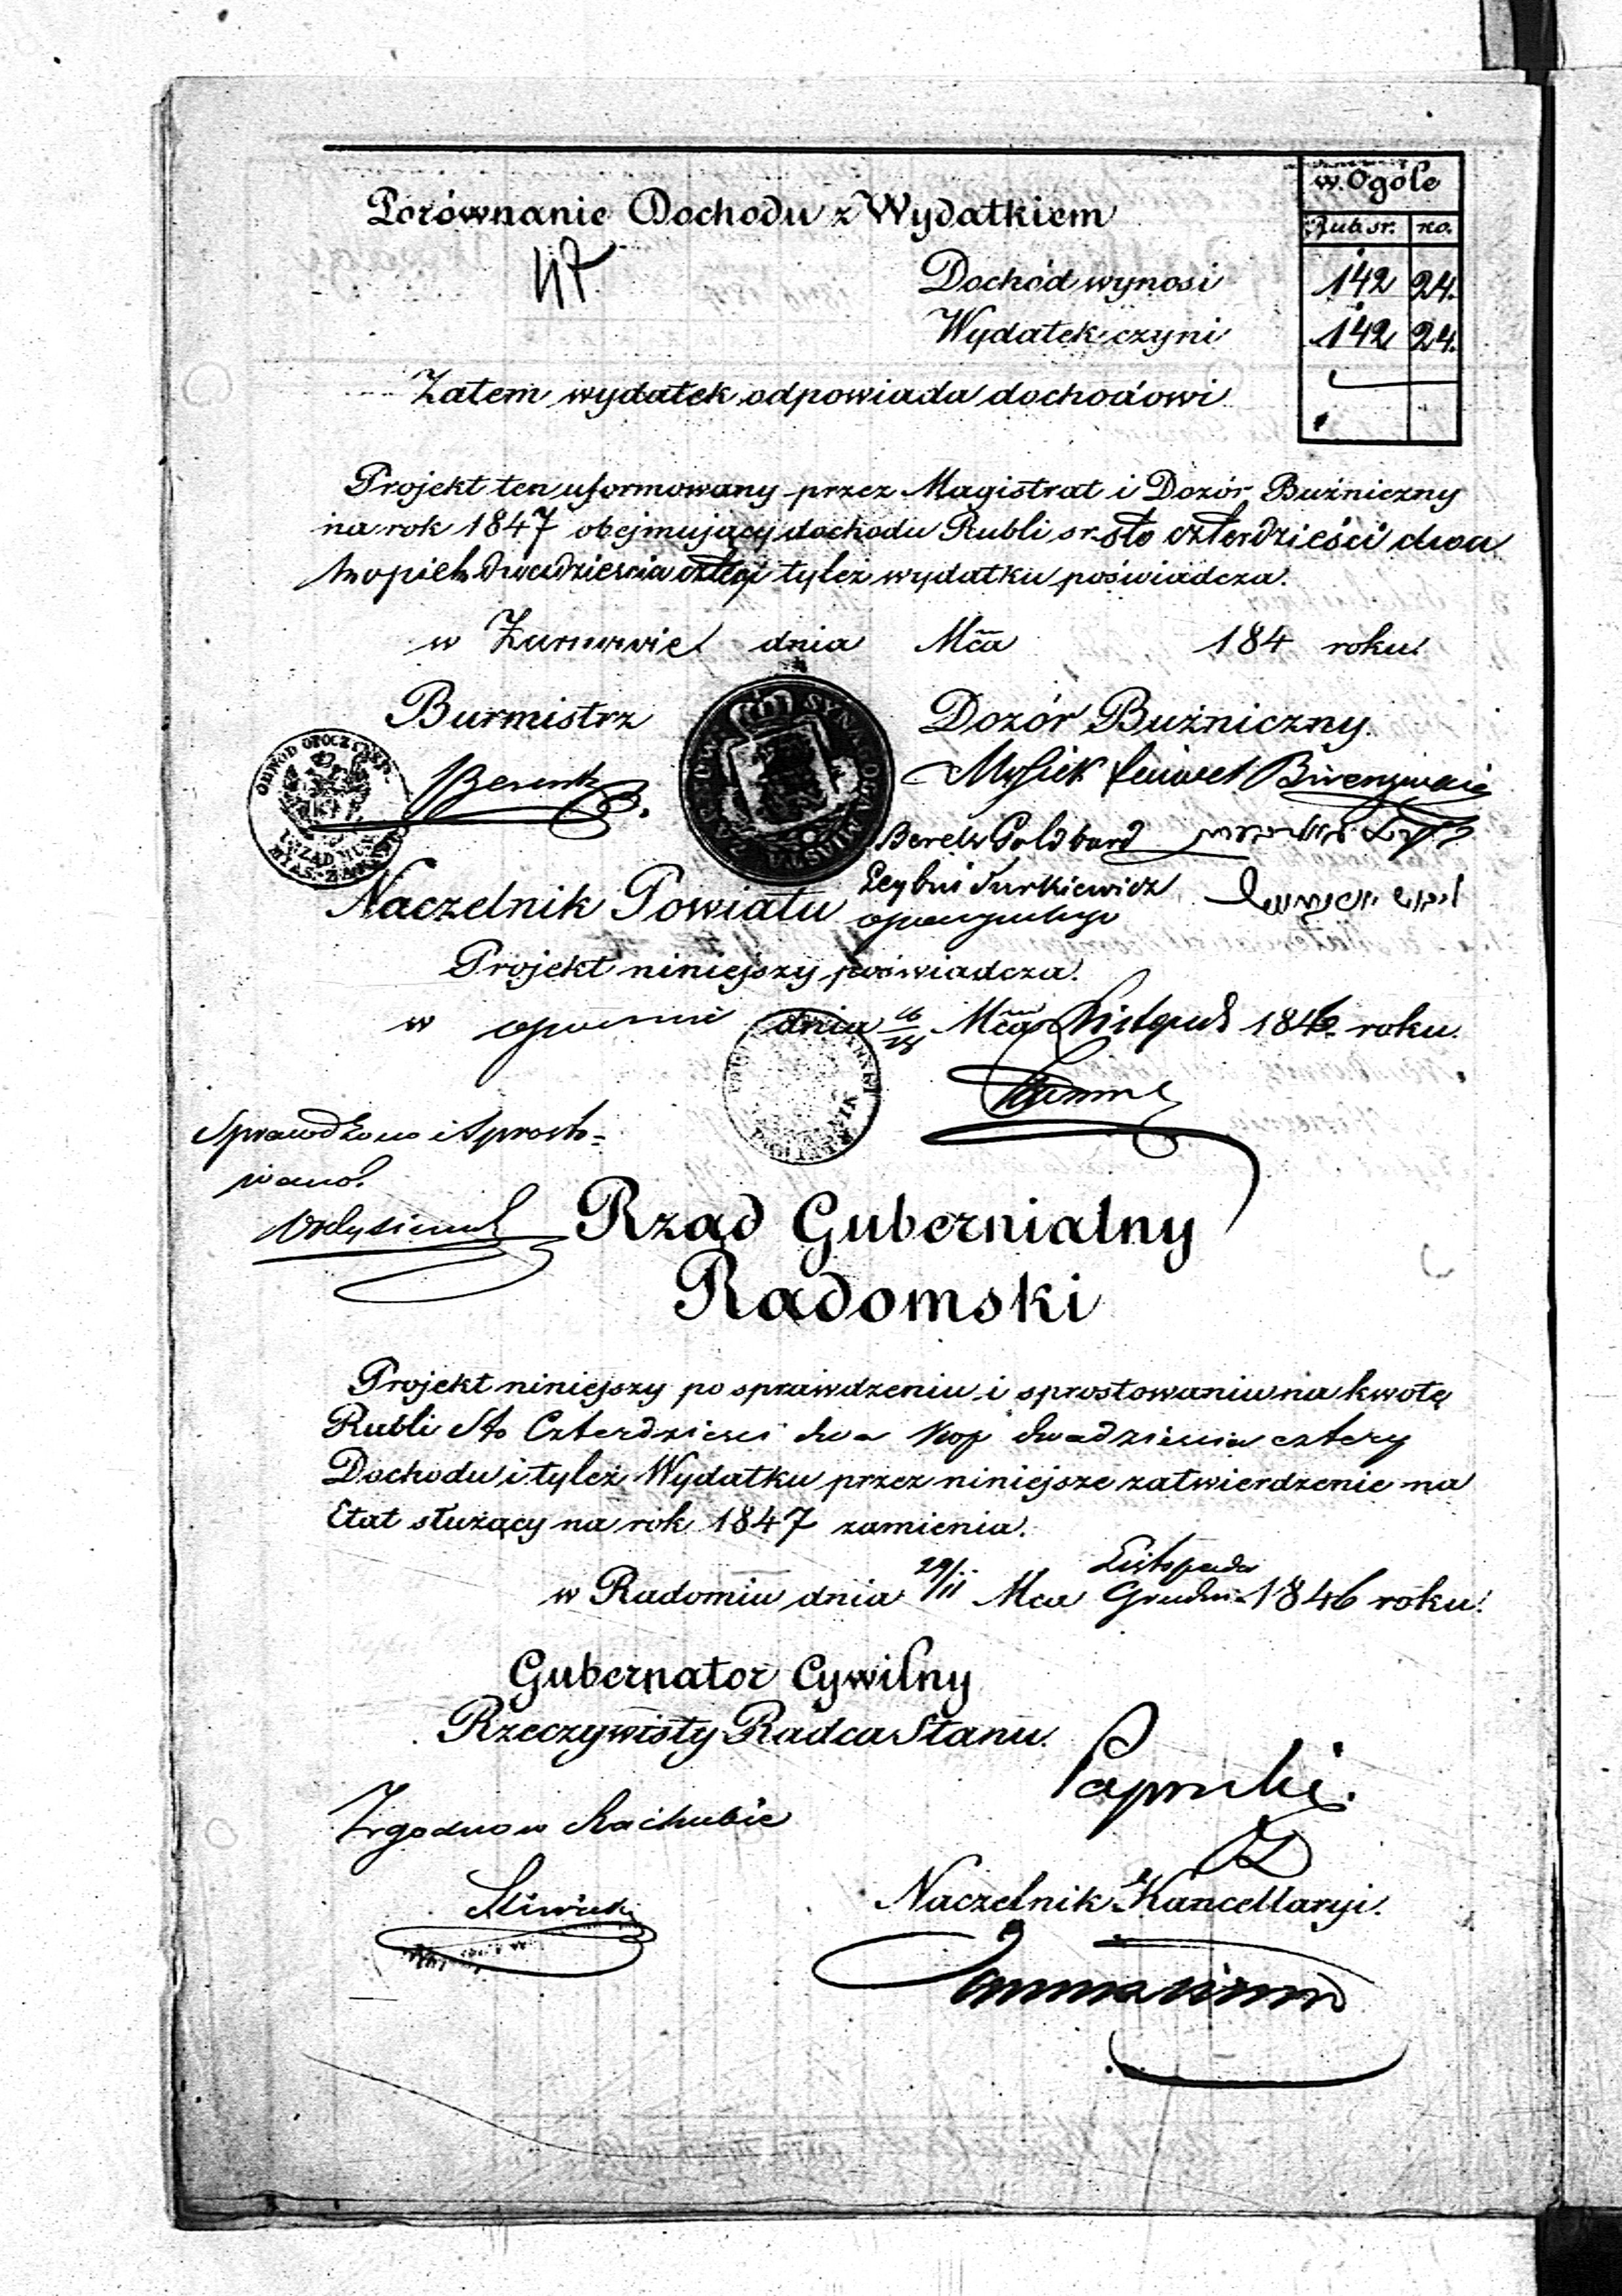 w Ogóle
Porównanie Dochodu z Wydatkiem
Rub sr. ko.
47
Dochód wynosi 142 24.
Wydatek czyni 142 24.
Zatem wydatek odpowiada dochodowi
Projekt ten uformowany przez Magistrat i Dozór Buźniczny
na rok 1847 obejmujący dochodu Rubli sr. sto czterdzieści dwa
kopiek dwadzieścia cztery tyleż wydatku poświadcza.
w Żarnowie dnia Mca 184 roku.
Burmistrz Dozór Buźniczny.
OBWÓD OPOCZYŃSKI
SYNAGOGA MIASTA
Berek Goldbard
Leybuś Jurkiewicz
Naczelnik Powiatu
Projekt niniejszy poświadcza.
w dnia 16/28 Mca Listopad 1846 roku.
Sprawdzono i Sprosto=
wano.
Rząd Gubernialny
Radomski
Projekt niniejszy po sprawdzeniu i sprostowaniu na kwotę
Rubli Sto Czterdzieści dwa Kop dwadzieścia cztery
Dochodu i tyleż Wydatku przez niniejsze zatwierdzenie na
Etat służący na rok 1847 zamienia.
Listopada
w Radomiu dnia 29/11 Mca Grudnia 1846 roku.
Gubernator Cywilny
Rzeczywisty Radca Stanu.
Zgodno w Rachubie
Naczelnik Kancellaryi.